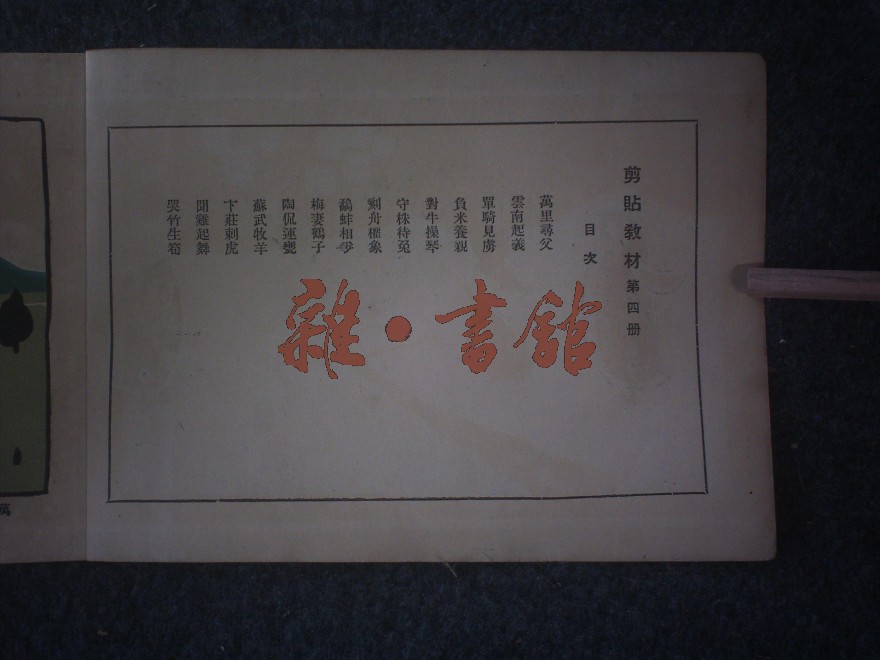 剪貼教材 第四册
目次
萬里尋父
雲南起義
單騎見虜
負米養親
對牛操琴
守株待兔
刻舟權象
鷸蚌相爭
梅妻鶴子
陶侃運甓
蘇武牧羊
卞莊刺虎
聞雞起舞
哭竹生筍
雜·書舘
萬